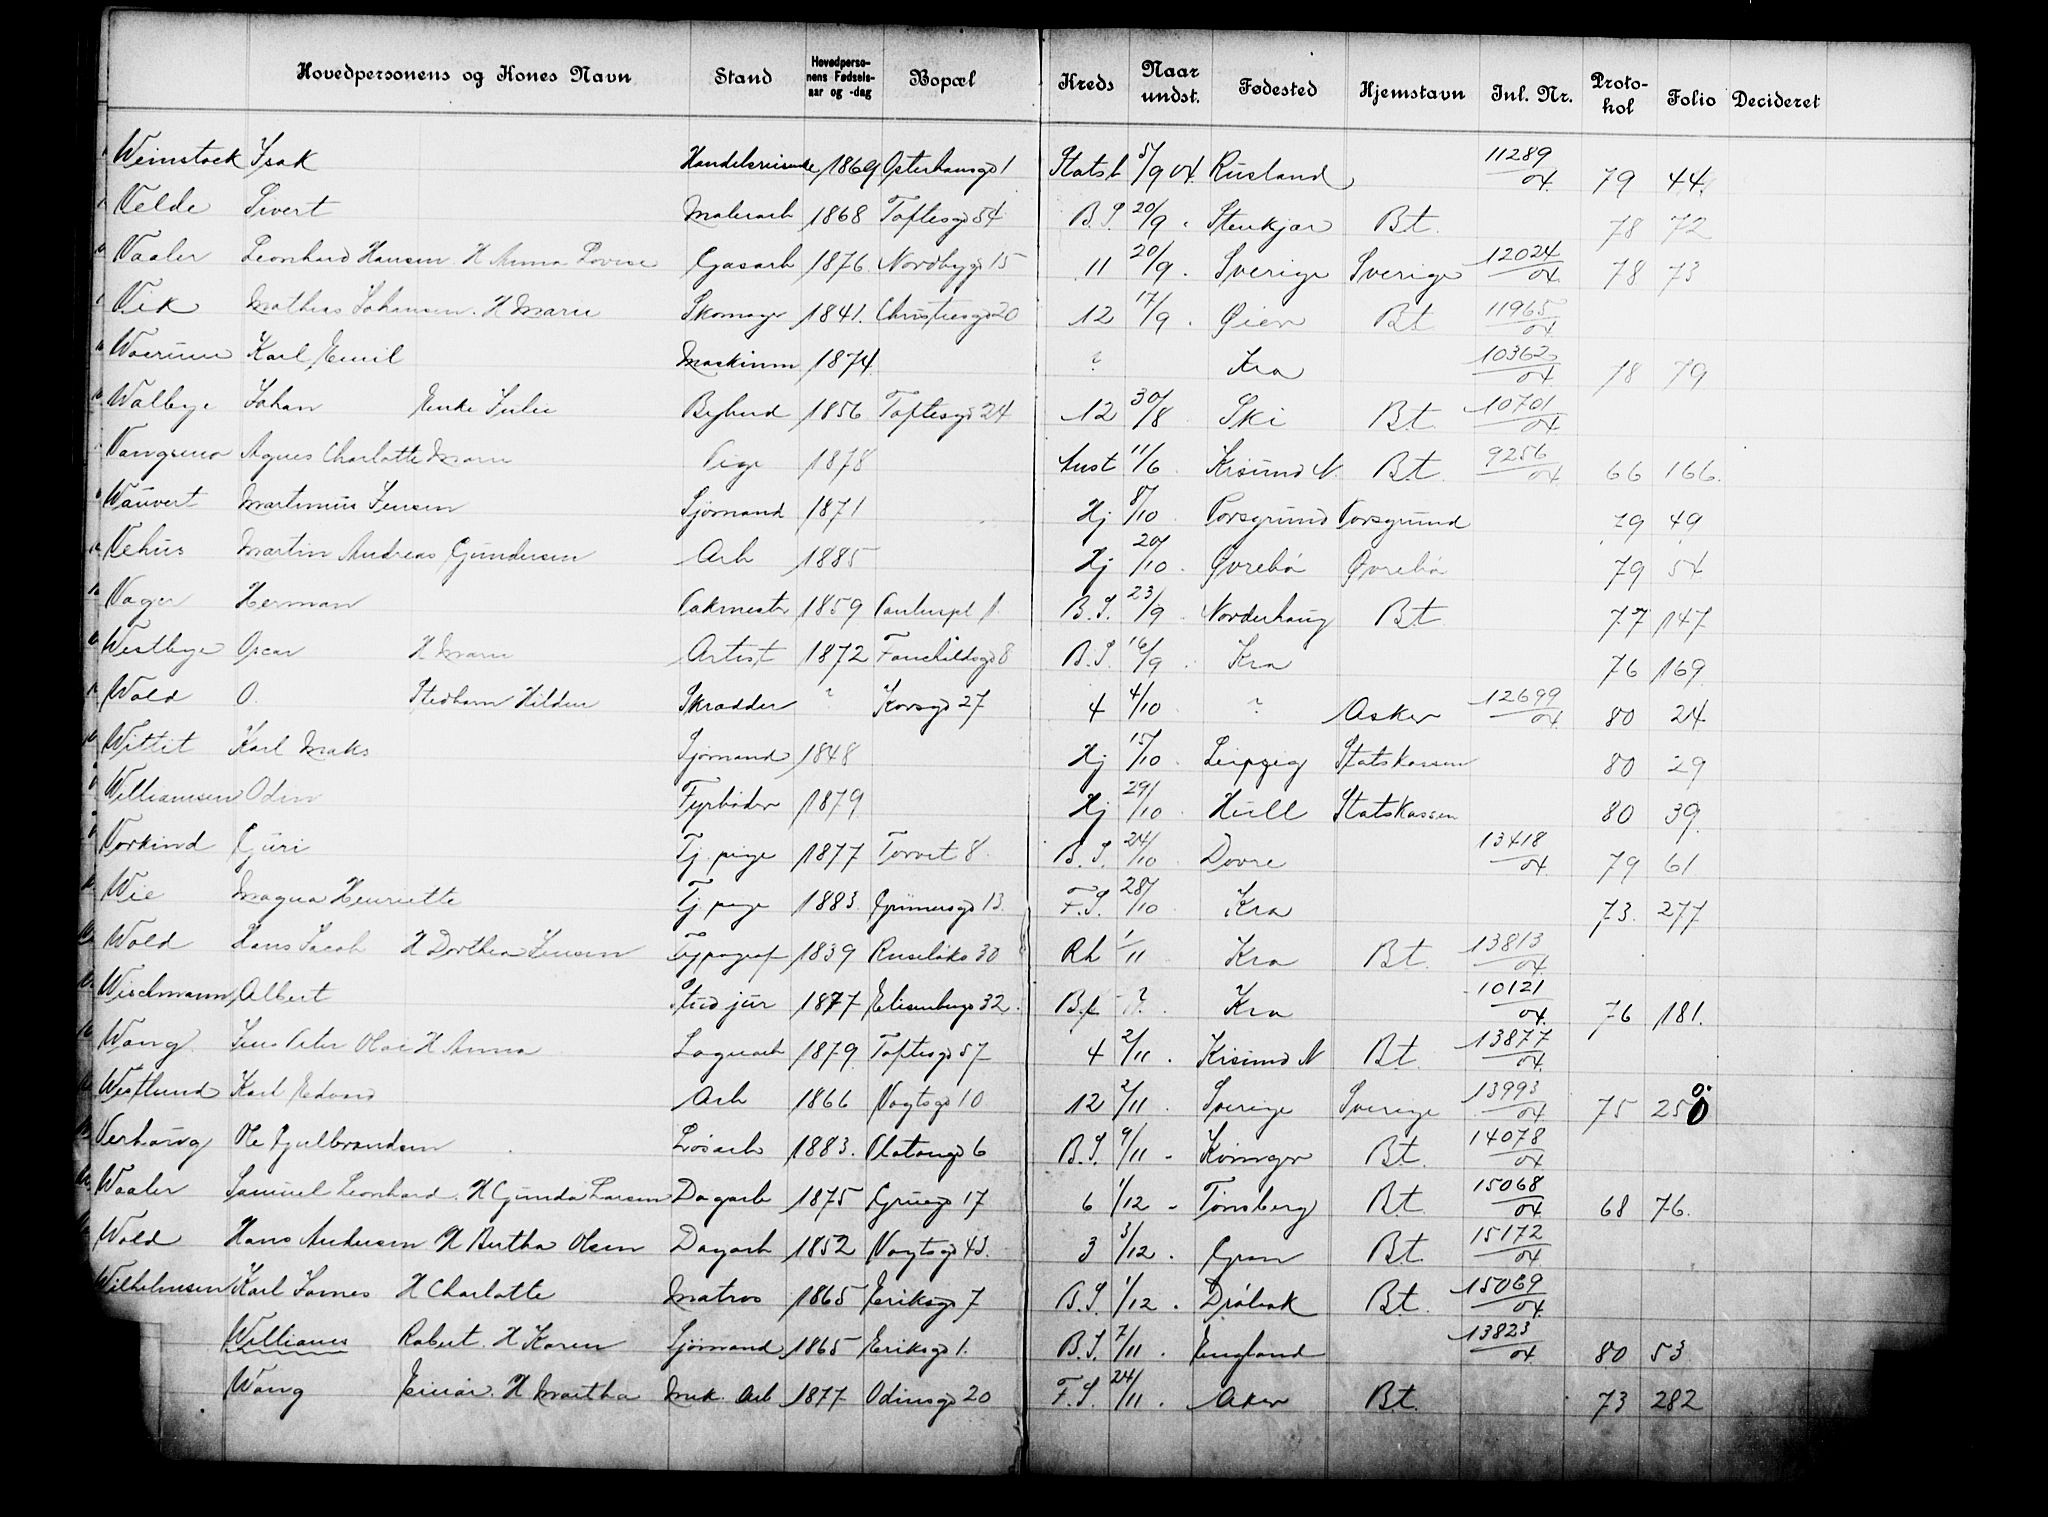 Hovedpersonens og Kones Navn Stand Hovedpersonens Fødselsaar og -dag Bopæl Kreds Naar undst. Fødested Hjemstavn Inl. Nr. Protokol Folio Decideret
Weinstock Isak Handelsreisende 1869 Osterhausgd 1 Statsb 5/9 04. Rusland 11289/04 79 44
Velde Sivert Malerarb 1868 Toftesgd 54 B.S. 20/9 Stenkjær Bt. 78 72
Vaaler Leonhard Hansen H Anna Lovise Gasarb 1876 Nordbygd 15 11 20/9 Sverige Sverige 12024/04 78 73
Vik Mathias Johansen H Marie Skomager 1841. Christiesgd 20 12 17/9 Øier Bt 11965/04
Waerum Karl Emil Maskinm 1874 ? Kra 10362/04 78 79
Walbye Johan Enke Julie Bybud 1856 Toftesgd 24 12 30/8 Ski Bt. 10701/04
Agnes Charlotte Marie Pige 1878 Anst 11/6 Krisund N. Bt. 9256/04 66 166
Wauvert Martinius Jensen Sjømand 1871 Hj 8/10 Porsgrund Porsgrund 79 49
Vehus Martin Andreas Gundersen Arb 1885 Hj 20/10 Øvrebø Øvrebø 79 54
Vager Herman Pakmester 1859 Pauluspl 1. B.S. 23/9 Norderhaug Bt. 77 147
Westbye Oscar H Marie Artist 1872 Fauchildsgd 8 B.S. 16/9 Kra 76 169
Wold O. Stedbarn Hildur Skrædder ? Korsgd 27 4 4/10 ? Asker 12699/04 80 24
Wittit Karl Maks Sjømand 1848 Hj 15/10 Leipzig Statskassen 80 29
Williamsen Odin Fyrbøder 1879 Hj 29/10 Hull Statskassen 80 39
Vorkind Guri Tj. pige 1877 Torvet 8 B.S. 24/10 Dovre 13418/04 79 61
Wie Magna Henriette Tj. pige 1883. Grünersgd 13. F.S. 28/10 Kra 73. 277
Wold Hans Jacob H Dorthea Jensen Typograf 1839 Ruseløkv 30 Rh 1/11 Kra Bt. 13813/04
Wischmann Albert Stud jur 1877 Elisenbergv 32 ? Kra 10121/04 76 181.
Wang Jens Peter Olai H Anna Lagerarb 1879. Toftesgd 57 4 2/11 Krisund N Bt. 13877/04
Westlund Karl Edvard Arb 1866 Vogtsgd 10 12 2/11 Sverige Sverige 13993/04 75 250
Verhaug Ole Gulbrandsen Løsarb 1883. Platougd 6 B.S. 9/11 Kvinger Bt. 14078/04
Waaler Samuel Leonhard H Gunda Larsen Dagarb 1875 Gruegd 17 6 1/12 Tønsberg Bt. 15068/04 68 76.
Wold Hans Andersen H Bertha Olsen Dagarb 1852 Vogtsgd 43. 3 3/12 Gran Bt 15172/04
Wilhelmsen Karl James H Charlotte Matros 1865 Eriksgd 7 B.S. 1/12 Drøbak Bt. 15069/04
Williams Robert H Karen Sjømand 1865 Eriksgd 1. B.S. 7/11 England 13823/04 80 53
Wang Einar. H Martha Mek. Arb 1877 Odinsgd 20 F.S. 24/11 Aker Bt. 73 282